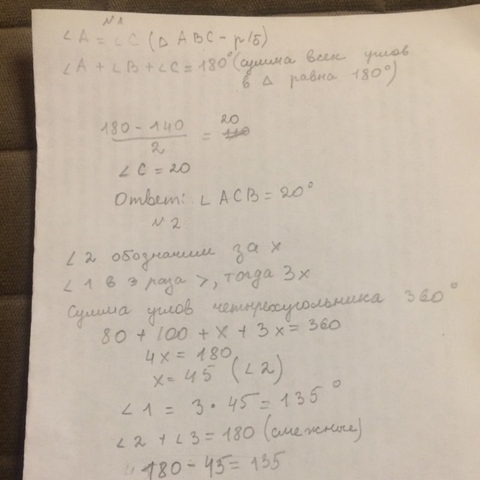 №1
∠A = ∠C (△ ABC - р/б)
∠A + ∠B + ∠C = 180° (сумма всех углов
в △ равна 180°)
180 - 140 / 2 = 20
∠C = 20
Ответ: ∠ACB = 20°
№2
∠2 обозначим за x
∠1 в 3 раза >, тогда 3x
Сумма углов четырехугольника 360°
80 + 100 + x + 3x = 360
4x = 180
x = 45 (∠2)
∠1 = 3 · 45 = 135°
∠2 + ∠3 = 180 (смежные)
180 - 45 = 135